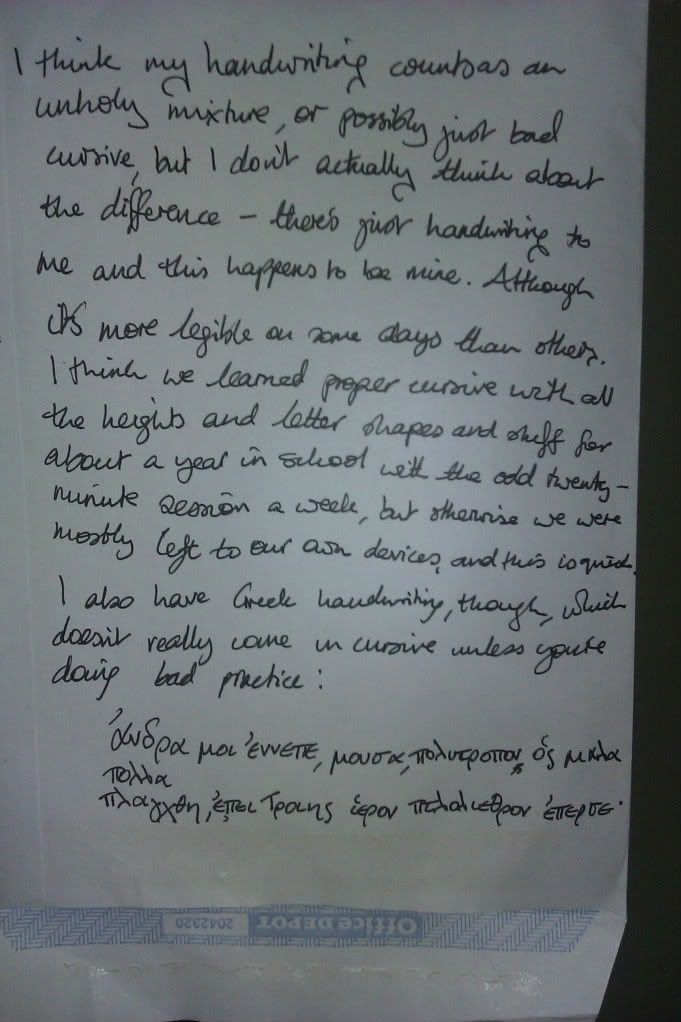 I think my handwriting counts as an
unholy mixture, or possibly just bad
cursive, but I don't actually think about
the difference – there's just handwriting to
me and this happens to be mine. Although
it's more legible on some days than others.
I think we learned proper cursive with all
the heights and letter shapes and stuff for
about a year in school with the odd twenty–
minute session a week, but otherwise we were
mostly left to our own devices, and this is quick.
I also have Greek handwriting, though, which
doesn't really come in cursive unless you're
doing bad practice:
ἀνδρα μοι ἐννεπε, μουσα, πολυτροπον, ὁς
πολλα
πλαγχθη, ἐπει Τροιης ἱερον ἐπερσε·
Office DEPOT
2042320